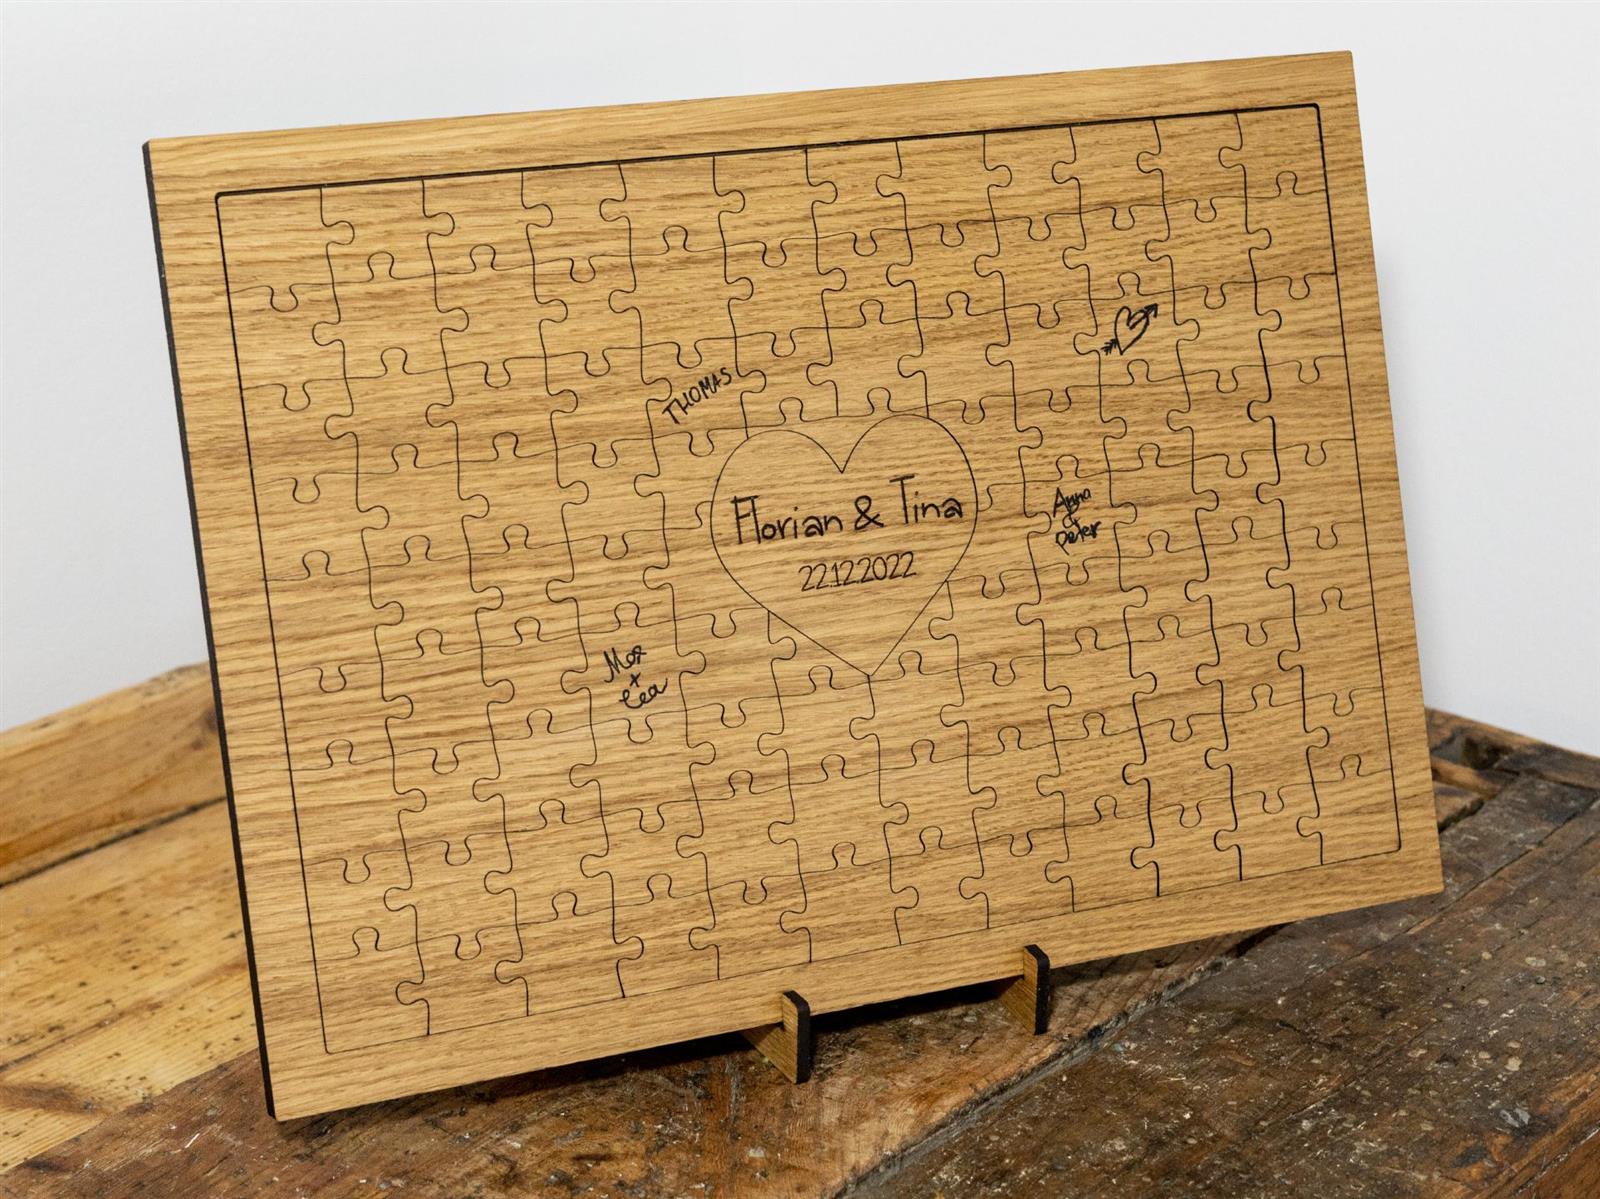 THOMAS
Florian & Tina
22.12.2022
Anna
+
Peter
Max
+
Lea